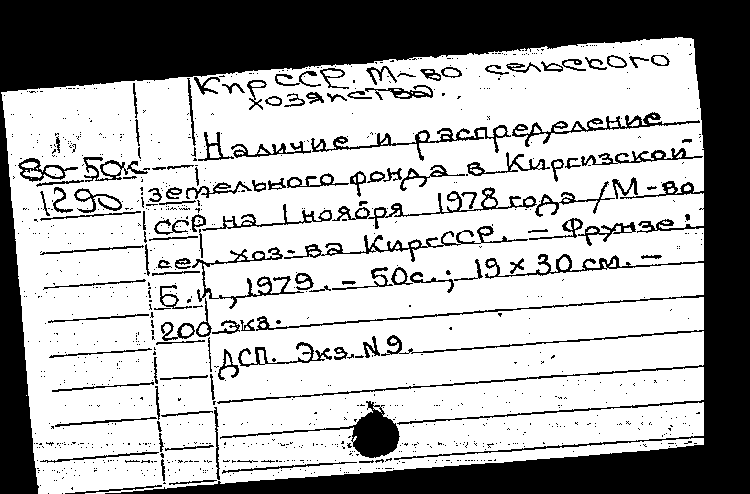 КирССР. М-во сельского
хозяйства.
Наличие и распределение
80-50к
земельного фонда в Киргизской
1290
ССР на 1 ноября 1978 года /М-во
сел. хоз-ва КиргССР. – Фрунзе:
Б.и., 1979. – 50с.; 19 x 30 см. –
200 экз.
ДСП. Экз. N9.